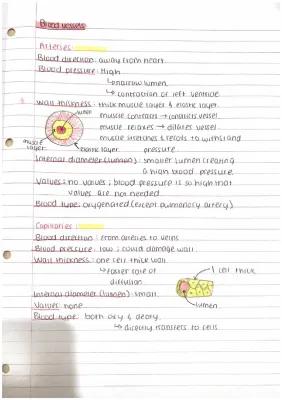 Blood vessels
Arteries:
Blood direction: away from heart
Blood pressure: High
↳ narrow lumen
↳ contraction of left ventricle
Wall thickness: thick muscle layer & elastic layer.
lumen
muscle contracts → constricts vessel
muscle relaxes → dilates vessel
muscle stretches & recoils to withstand
muscle layer
elastic layer
pressure.
Internal diameter (lumen): smaller lumen creating
a high blood pressure.
Valves: no valves; blood pressure is so high that
valves are not needed.
Blood type: oxygenated (except pulmonary artery)
Capillaries:
Blood direction: from arteries to veins
Blood pressure: low; could damage wall.
Wall thickness: one cell thick wall
↳ faster rate of
diffusion.
1 cell thick
Internal diameter (lumen): small.
lumen
Valves: none.
Blood type: both oxy & deoxy.
↳ directly transfers to cells